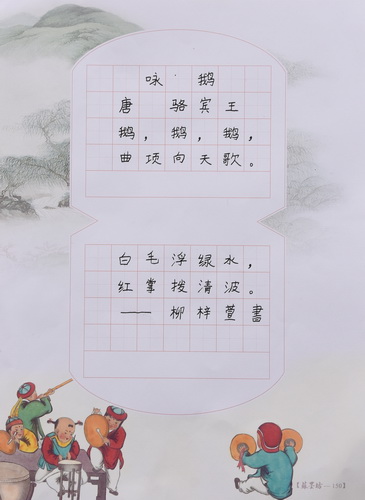 咏 · 鹅
唐 骆宾王
鹅，鹅，鹅，
曲项向天歌。
白毛浮绿水，
红掌拨清波。
—— 柳梓萱書